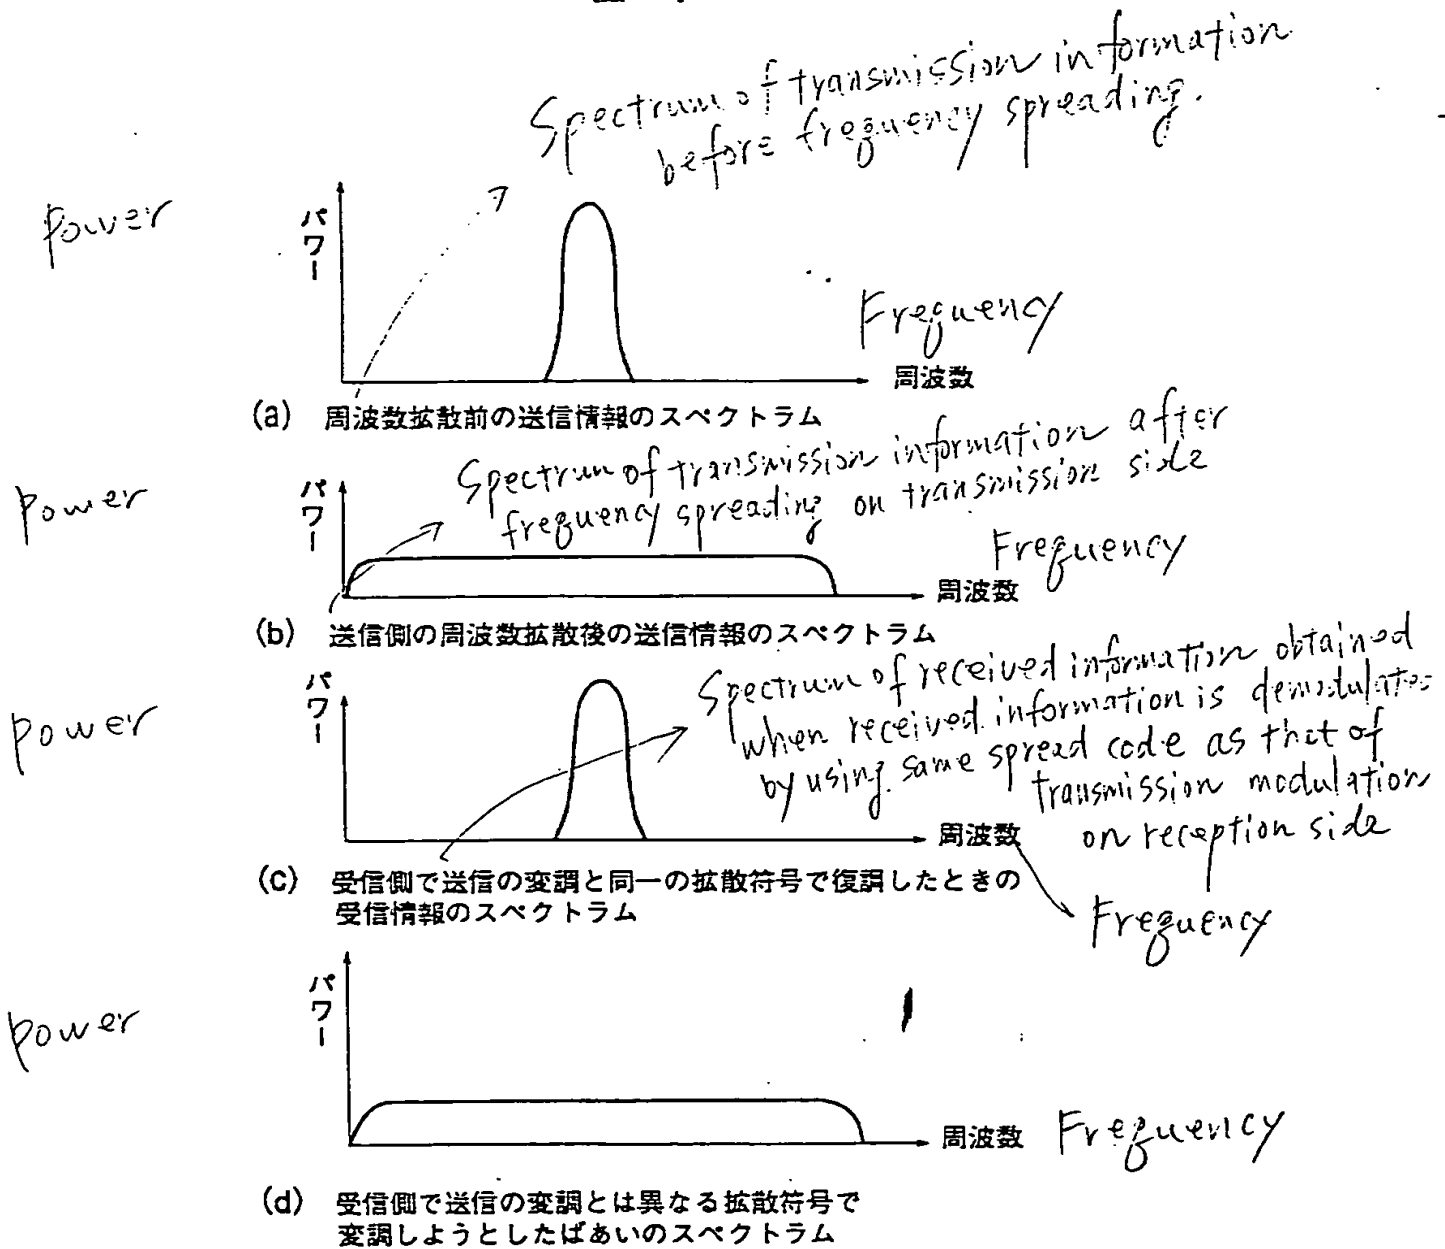 Spectrum of transmission information
before frequency spreading.
Power
パワー
Frequency
周波数
(a) 周波数拡散前の送信情報のスペクトラム
Spectrum of transmission information after
frequency spreading on transmission side
Power
パワー
Frequency
周波数
(b) 送信側の周波数拡散後の送信情報のスペクトラム
Spectrum of received information obtained
when received information is demodulated
by using same spread code as that of
transmission modulation
on reception side
Power
パワー
周波数
(c) 受信側で送信の変調と同一の拡散符号で復調したときの
受信情報のスペクトラム
Frequency
Power
パワー
周波数 Frequency
(d) 受信側で送信の変調とは異なる拡散符号で
変調しようとしたばあいのスペクトラム